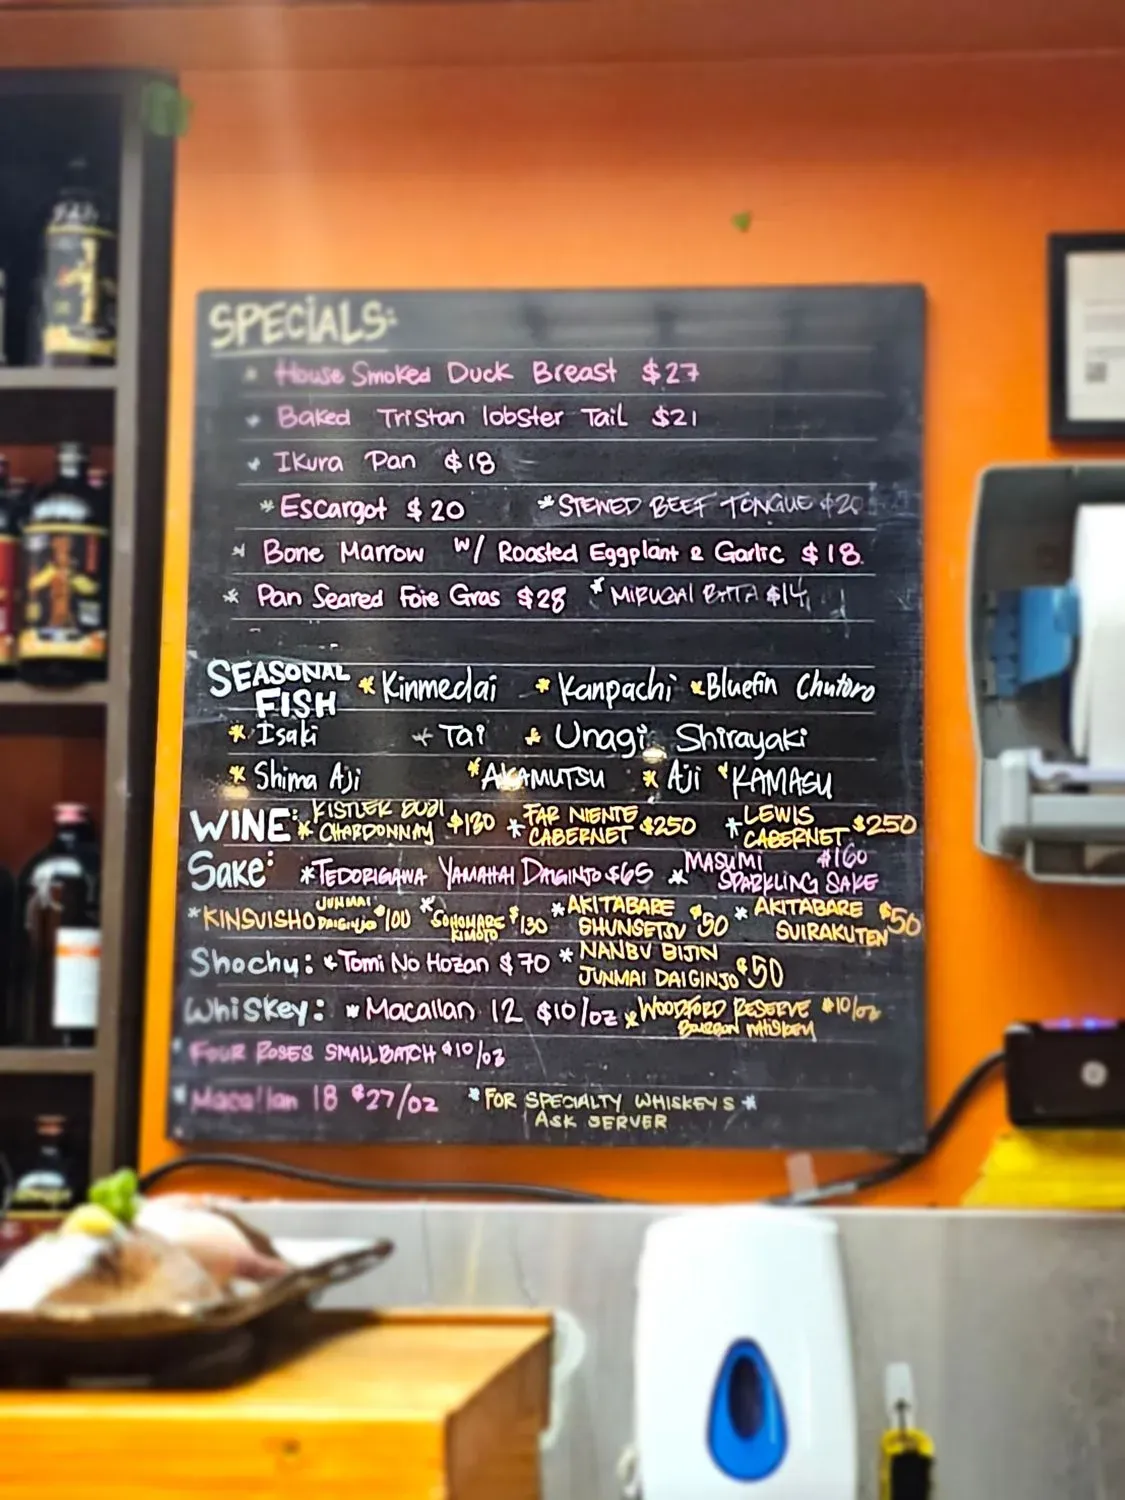 SPECIALS:
* House Smoked Duck Breast $27
* Baked Tristan lobster Tail $21
* Ikura Pan $18
* Escargot $20 * STEWED BEEF TONGUE $20
* Bone Marrow w/ Roasted Eggplant & Garlic $18
* Pan Seared Foie Gras $28 * MIRUGAI BATA $14
SEASONAL FISH * Kinmedai * Kanpachi * Bluefin Chutoro
* Isaki * Tai * Unagi Shirayaki
* Shima Aji * AKAMUTSU * Aji * KAMASU
WINE: * KISTLER CHARDONNAY * FAR NIENTE CABERNET $250 * LEWIS CABERNET $250
Sake: * TEDORIGAWA YAMAHAI DAIGINJO $65 * MASUMI SPARKLING SAKE $160
* KINSUISHO JUNMAI DAIGINJO $100 * SOHOMARE KIMOTO $130 * AKITABARE SHUNSETSU $50 * AKITABARE SUIRAKUTEN $50
Shochu: * Tomi No Hozan $70 * NANBU BIJIN JUNMAI DAIGINJO $50
Whiskey: * Macallan 12 $10/oz * WOODFORD RESERVE BOURBON WHISKEY $10/oz
* FOUR ROSES SMALL BATCH $10/oz
* Macallan 18 $27/oz * FOR SPECIALTY WHISKEYS *
ASK SERVER